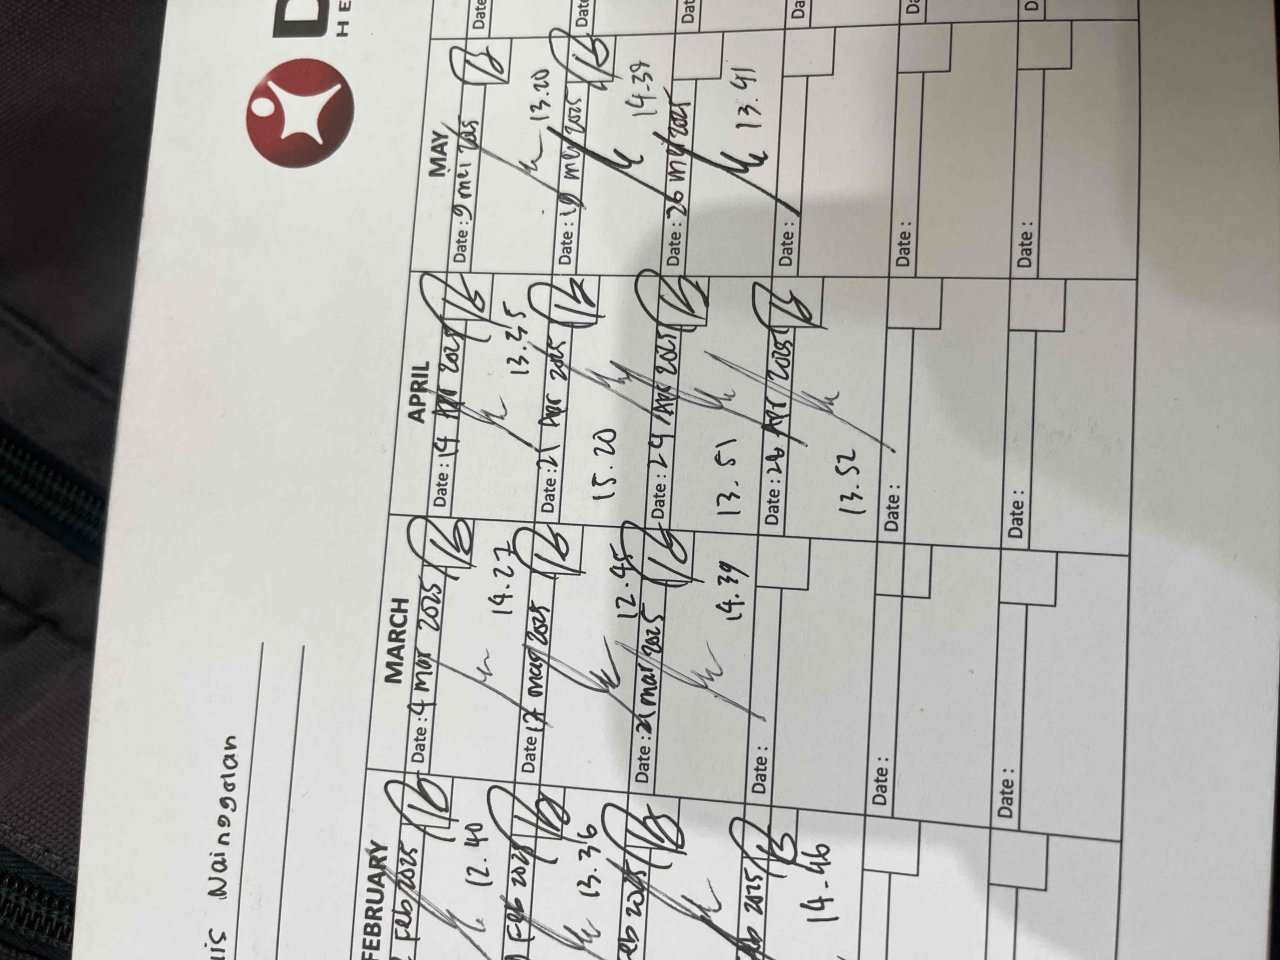 Nainggolan
D
HE
FEBRUARY
Feb 2025
12.40
Feb 2025
13.36
Feb 2025
Feb 2025
14-46
MARCH
Date : 4 mar 2025
14.27
Date 17 mar 2025
12.45
Date : 21 mar 2025
14.39
Date :
Date :
Date :
APRIL
Date : 14 Apr 2025
13.35
Date : 21 Apr 2025
15.20
Date : 24 Apr 2025
13.51
Date : 28 Apr 2025
13.52
Date :
Date :
MAY
Date : 9 mei 2025
13.20
Date : 19 mei 2025
14.39
Date : 26 mei 2025
13.41
Date :
Date :
Date :
Date
Date
Dat
Da
Da
D